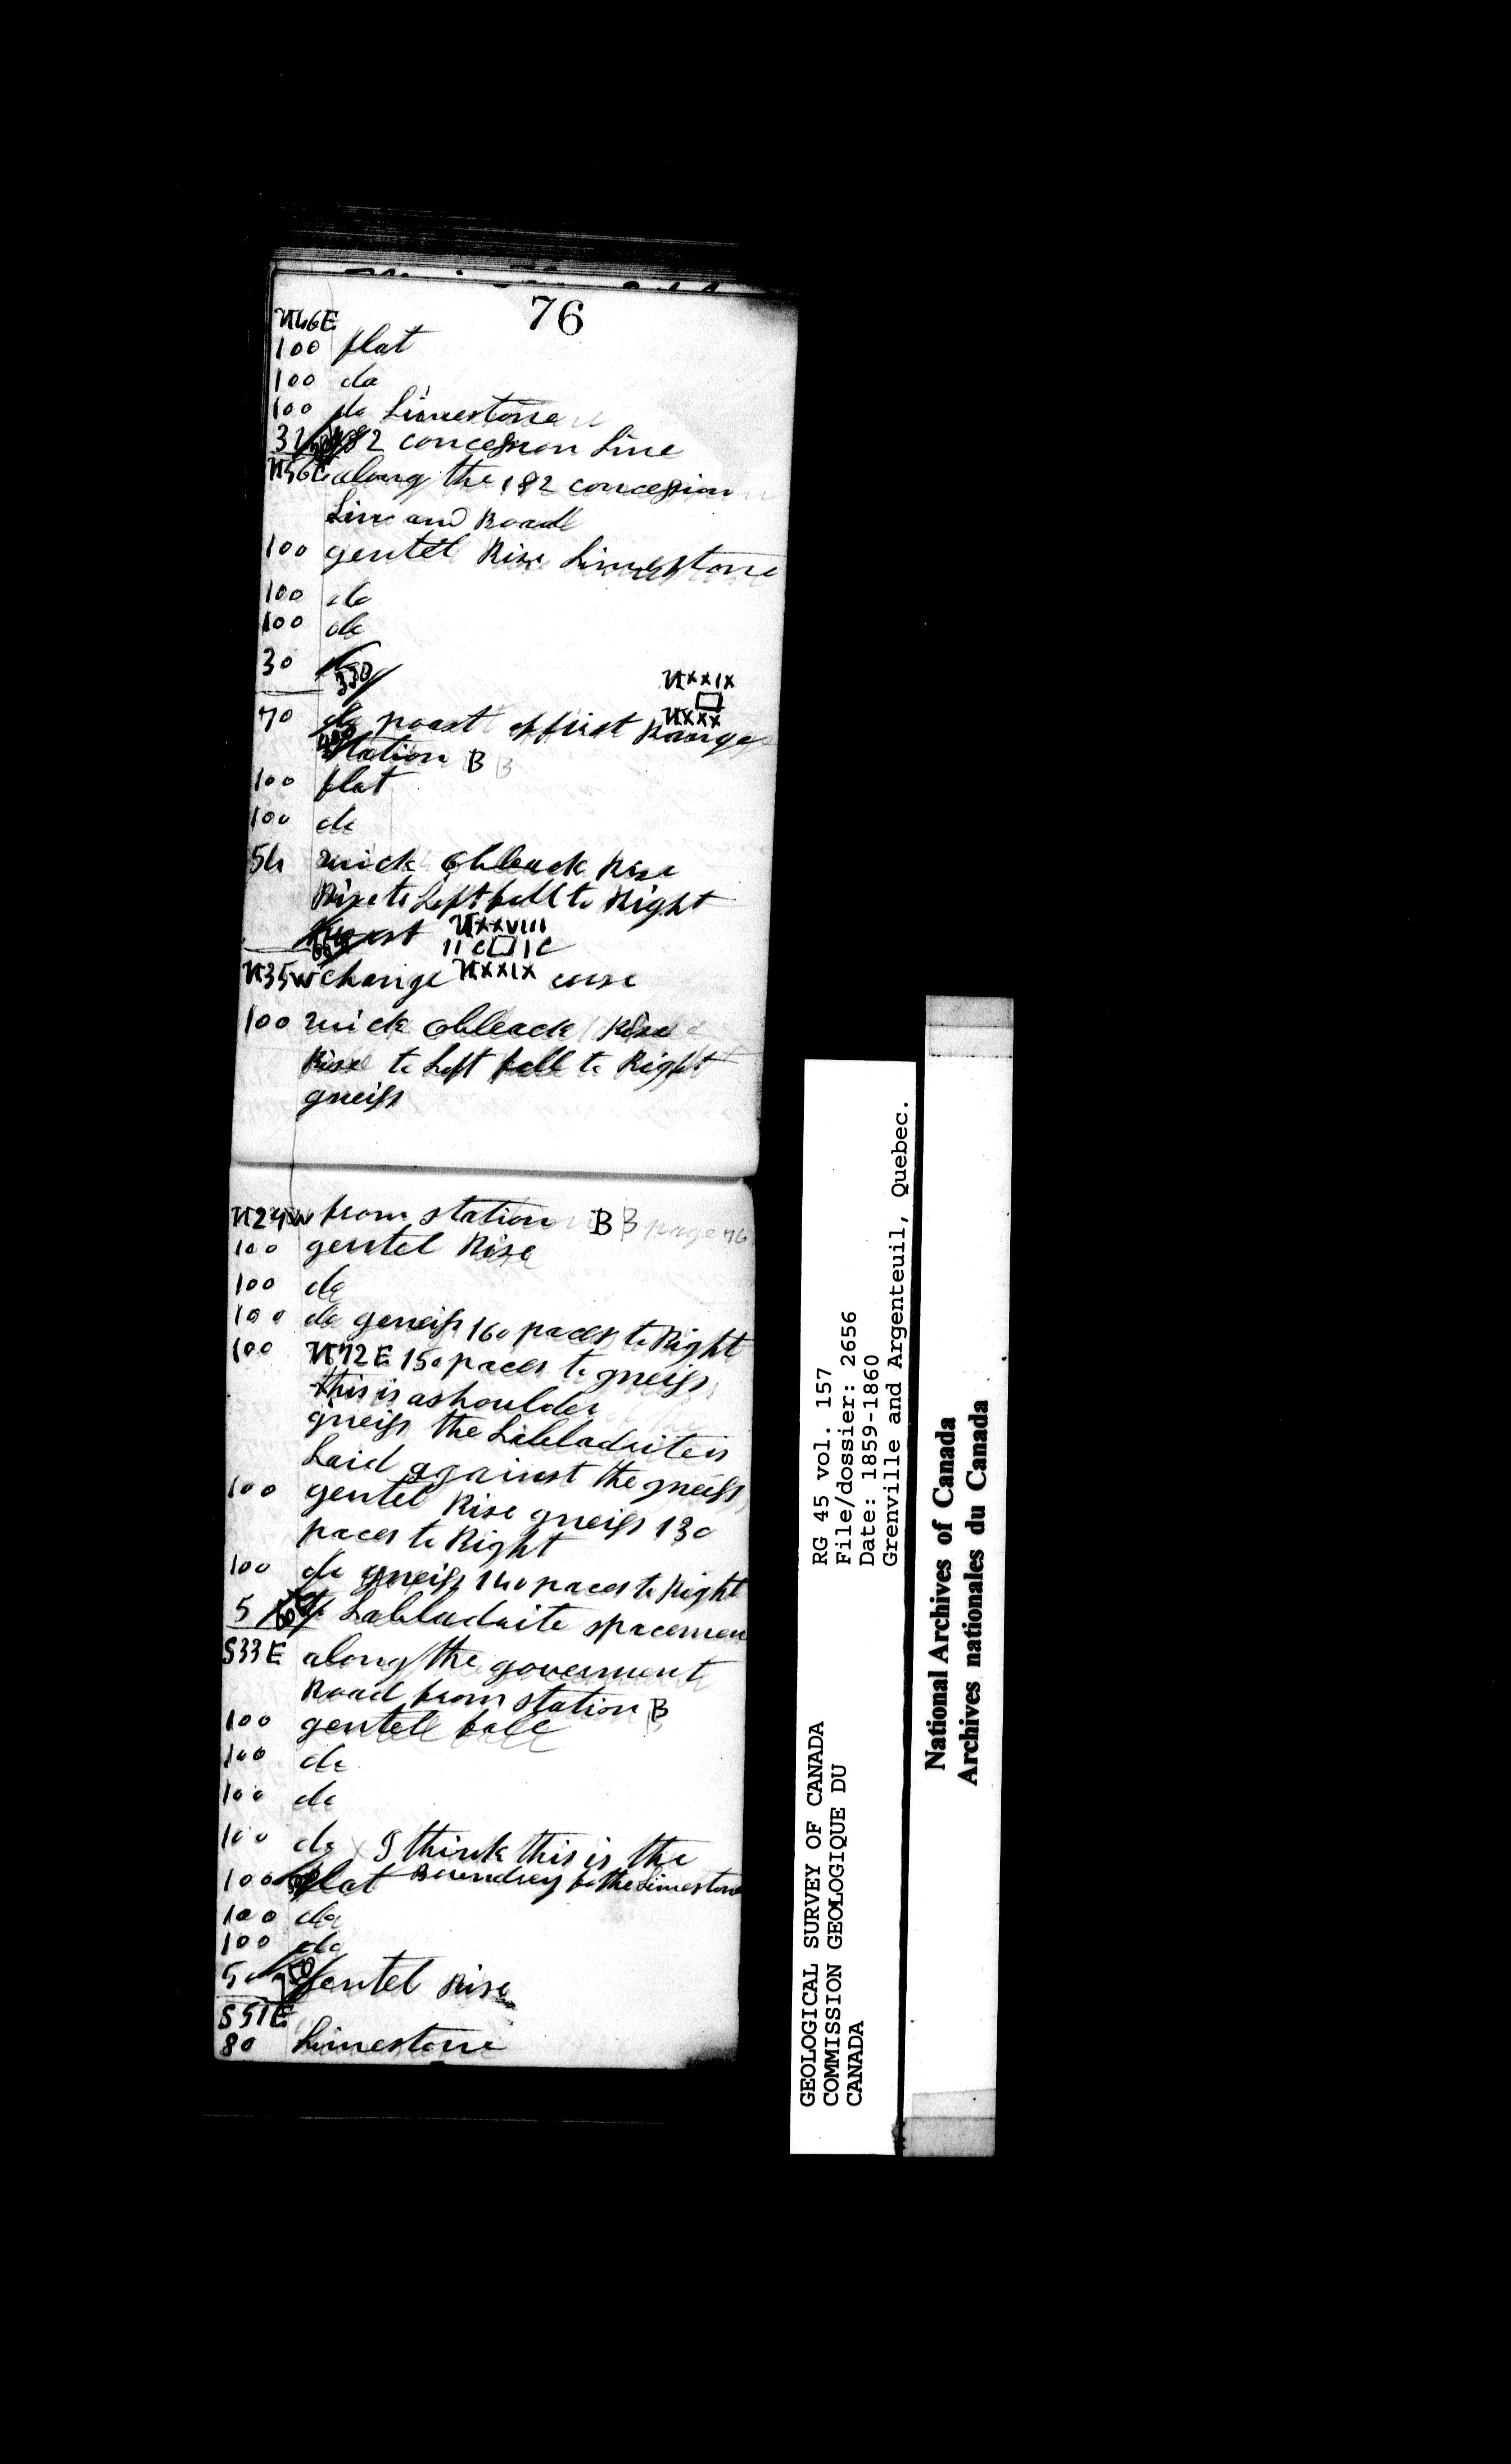 76
N46E
100 flat
100 do
100 do Limestone
32 1&2 concession Line
N56E along the 1&2 concession
Line and Road
100 gentel Rise Limestone
100 do
100 do
30 do
330
NXXIX
70 do poast of first Range
NXXX
400
Station B
100 flat
100 do
54 quick obleack Rise
Rise to Left fall to Right
poast NXXVIII
11 C 1 C
N35W change NXXIX corse
100 quick obleack Rise
Rise to Left fall to Right
gneiss
N24W from station B B page 76
100 gentel Rise
100 do
100 do geneiss 160 paces to Right
100 N72E 150 paces to gneiss
this is a shoulder of the
gneiss the Labladrite is
Laid against the gneiss
100 gentel Rise gneiss 130
paces to Right
100 do gneiss 140 paces to Right
5 to Labladrite spacemen
S33E along the goverment
Road from station B
100 gentell fall
100 do
100 do
100 do X I think this is the
100 flat Boundrey fo the Limestone
100 do
100 do
50 gentel Rise
750
S51E
80 Limestone
GEOLOGICAL SURVEY OF CANADA
COMMISSION GEOLOGIQUE DU
CANADA
RG 45 vol. 157
File/dossier: 2656
Date: 1859-1860
Grenville and Argenteuil, Quebec.
National Archives of Canada
Archives nationales du Canada